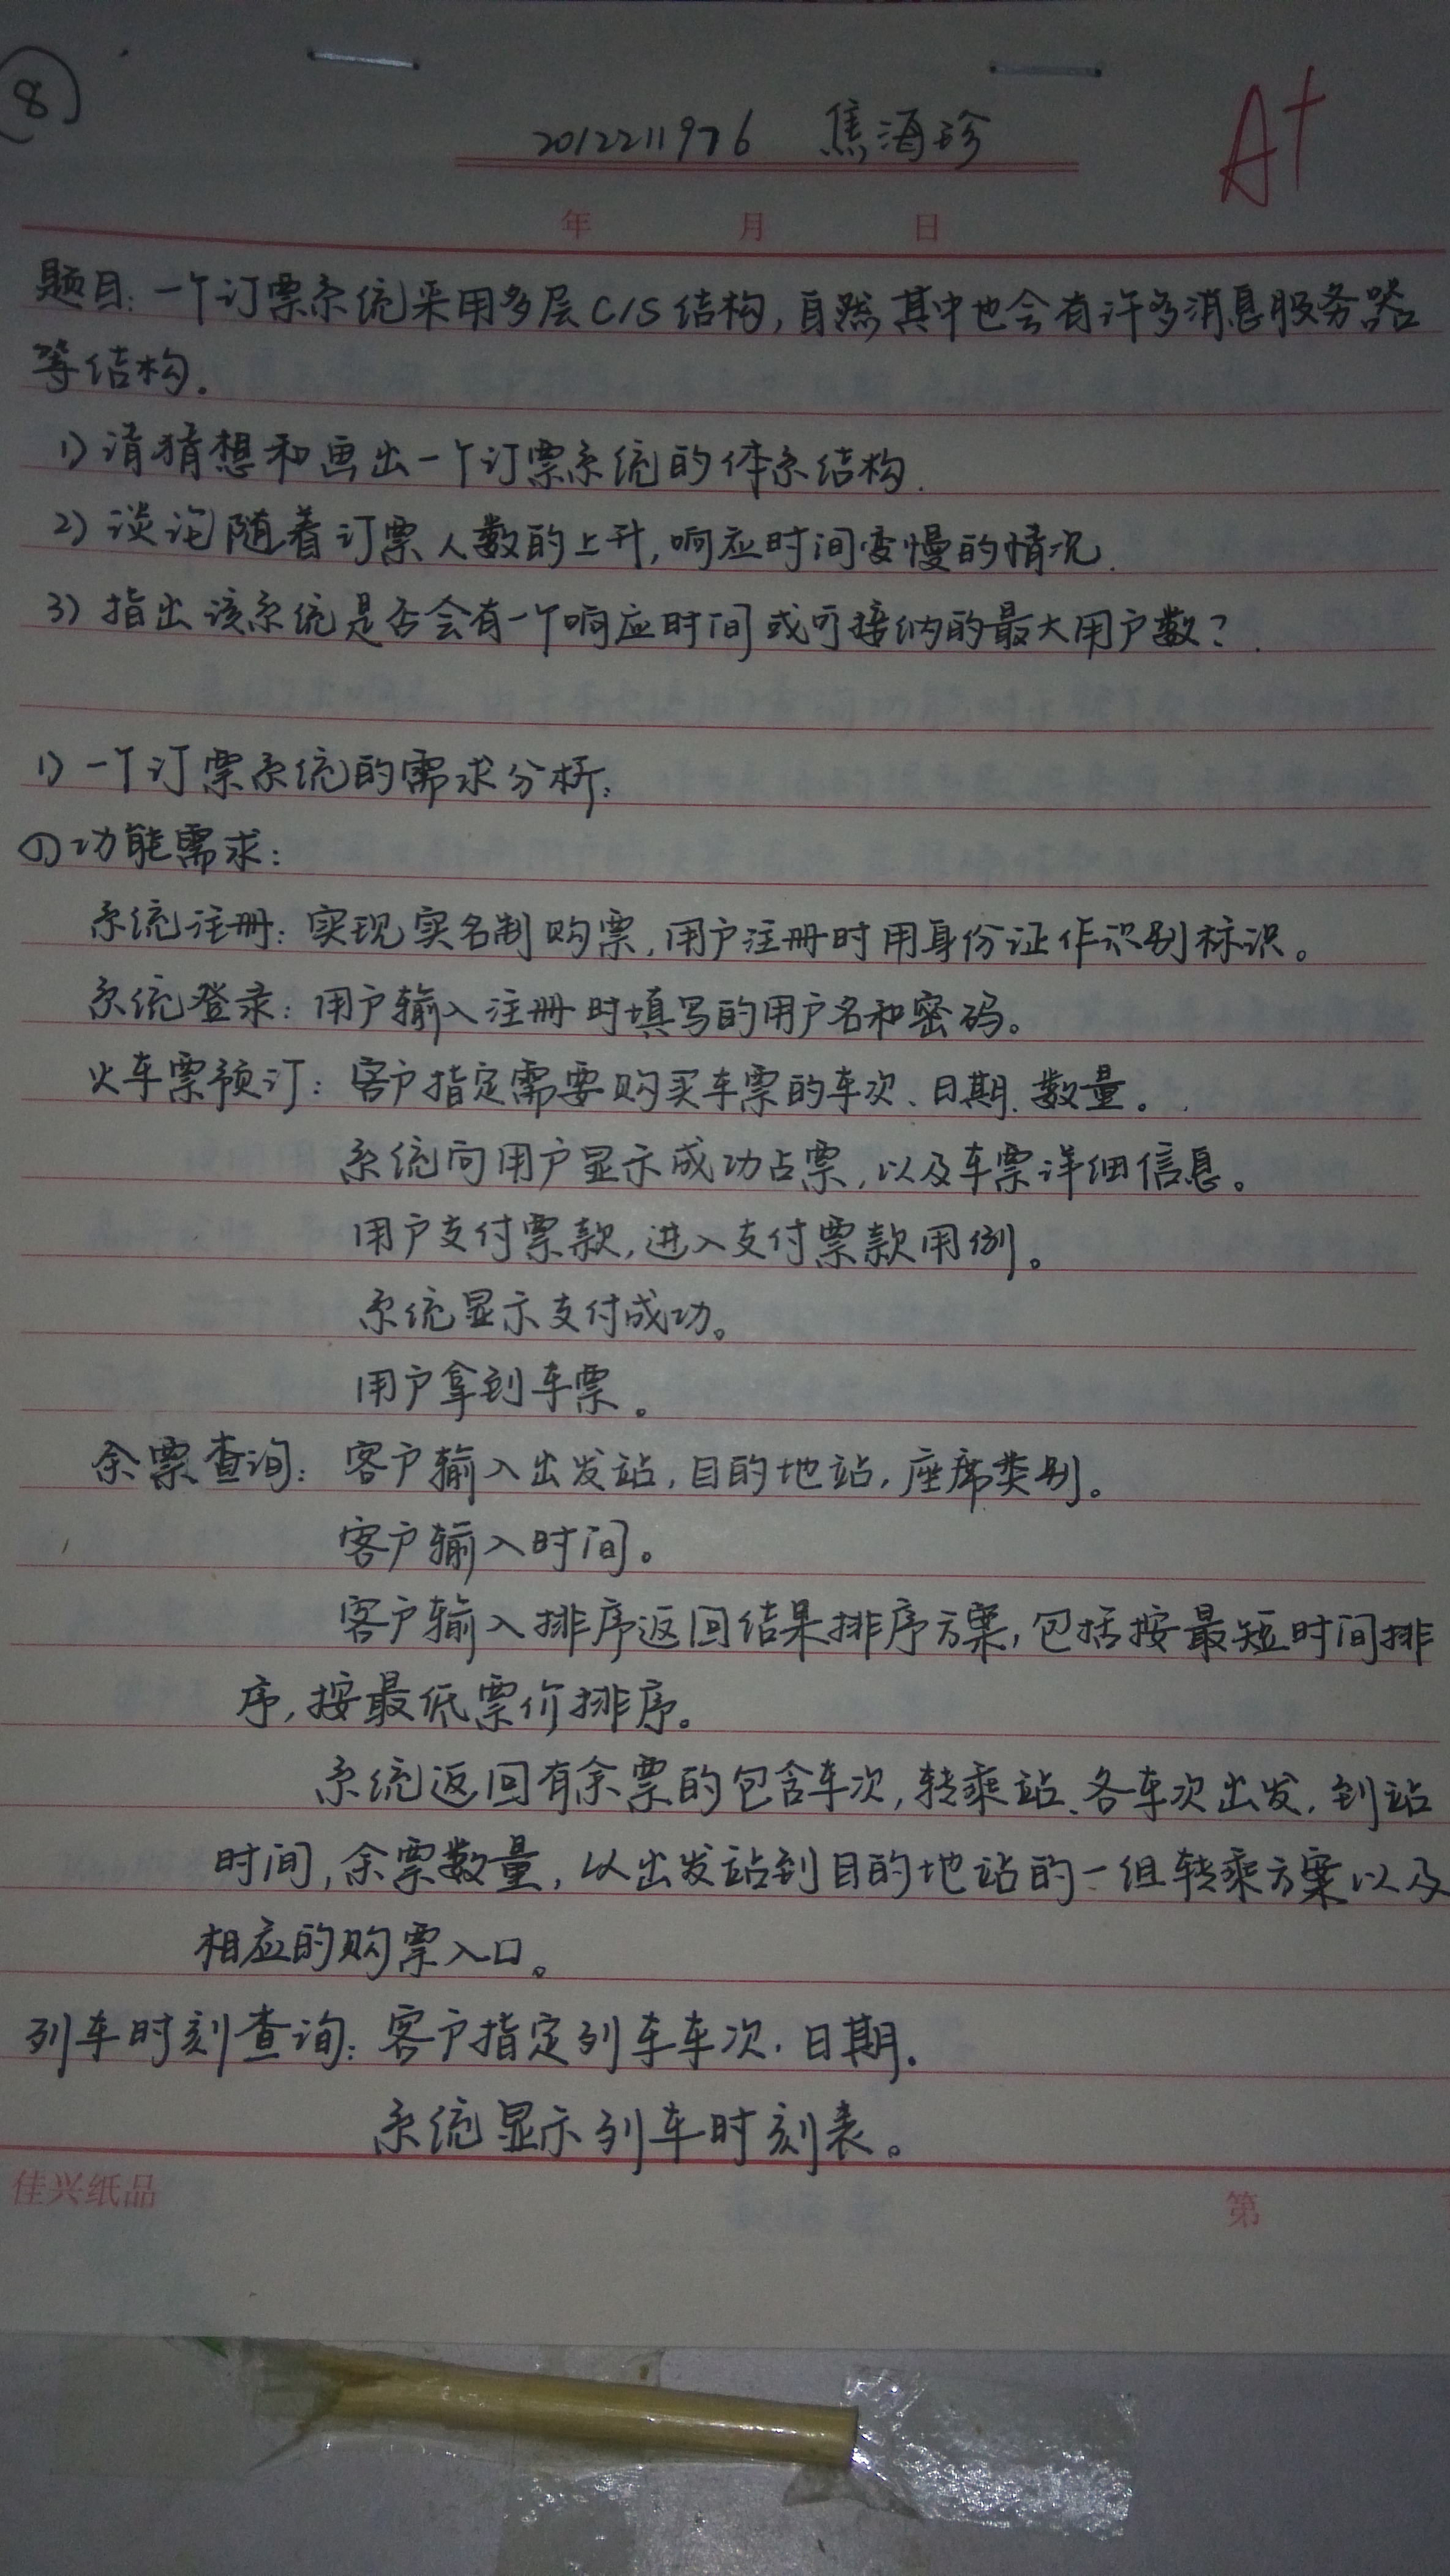 8
2012211976 焦海珍
A+
年 月 日
题目:一个订票系统采用多层C/S结构,自然其中也会有许多消息服务器
等结构.
1) 请猜想和画出一个订票系统的体系结构.
2) 谈论随着订票人数的上升,响应时间变慢的情况.
3) 指出该系统是否会有一个响应时间或可接纳的最大用户数?
1) 一个订票系统的需求分析:
(1)功能需求:
系统注册:实现实名制购票,用户注册时用身份证作识别标识。
系统登录:用户输入注册时填写的用户名和密码。
火车票预订:客户指定需要购买车票的车次、日期、数量。
系统向用户显示成功占票,以及车票详细信息。
用户支付票款,进入支付票款用例。
系统显示支付成功。
用户拿到车票。
余票查询:客户输入出发站,目的地站,座席类别。
客户输入时间。
客户输入排序返回结果排序方案,包括按最短时间排
序,按最低票价排序。
系统返回有余票的包含车次,转乘站、各车次出发,到站
时间,余票数量,以出发站到目的地站的一组转乘方案以及
相应的购票入口。
列车时刻查询:客户指定列车车次、日期.
系统显示列车时刻表。
佳兴纸品 第